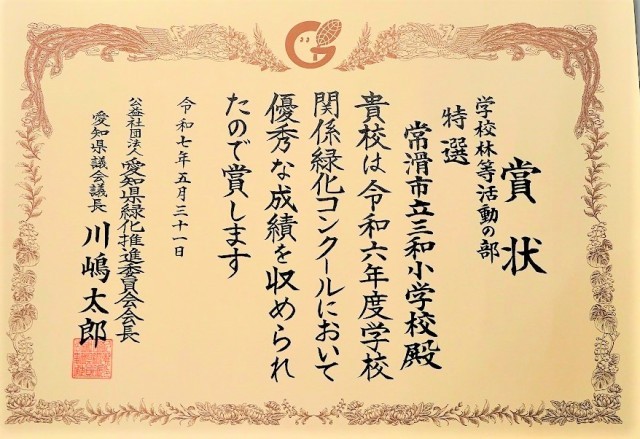 賞状
学校林等活動の部
特選
常滑市立三和小学校殿
貴校は令和六年度学校
関係緑化コンクールにおいて
優秀な成績を収められ
たので賞します
令和七年五月三十一日
公益社団法人愛知県緑化推進委員会会長
愛知県議会議長川嶋太郎